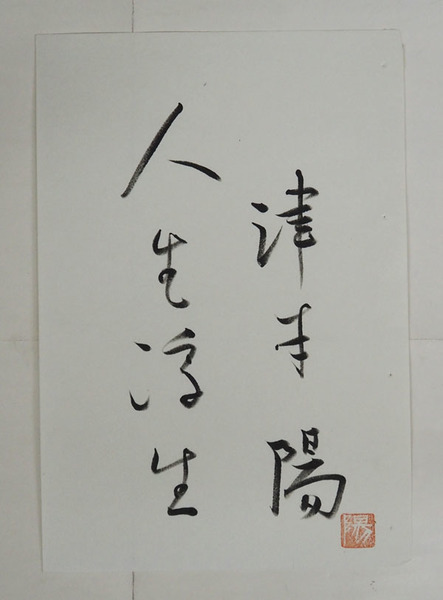 津半陽
人生浮生
陽